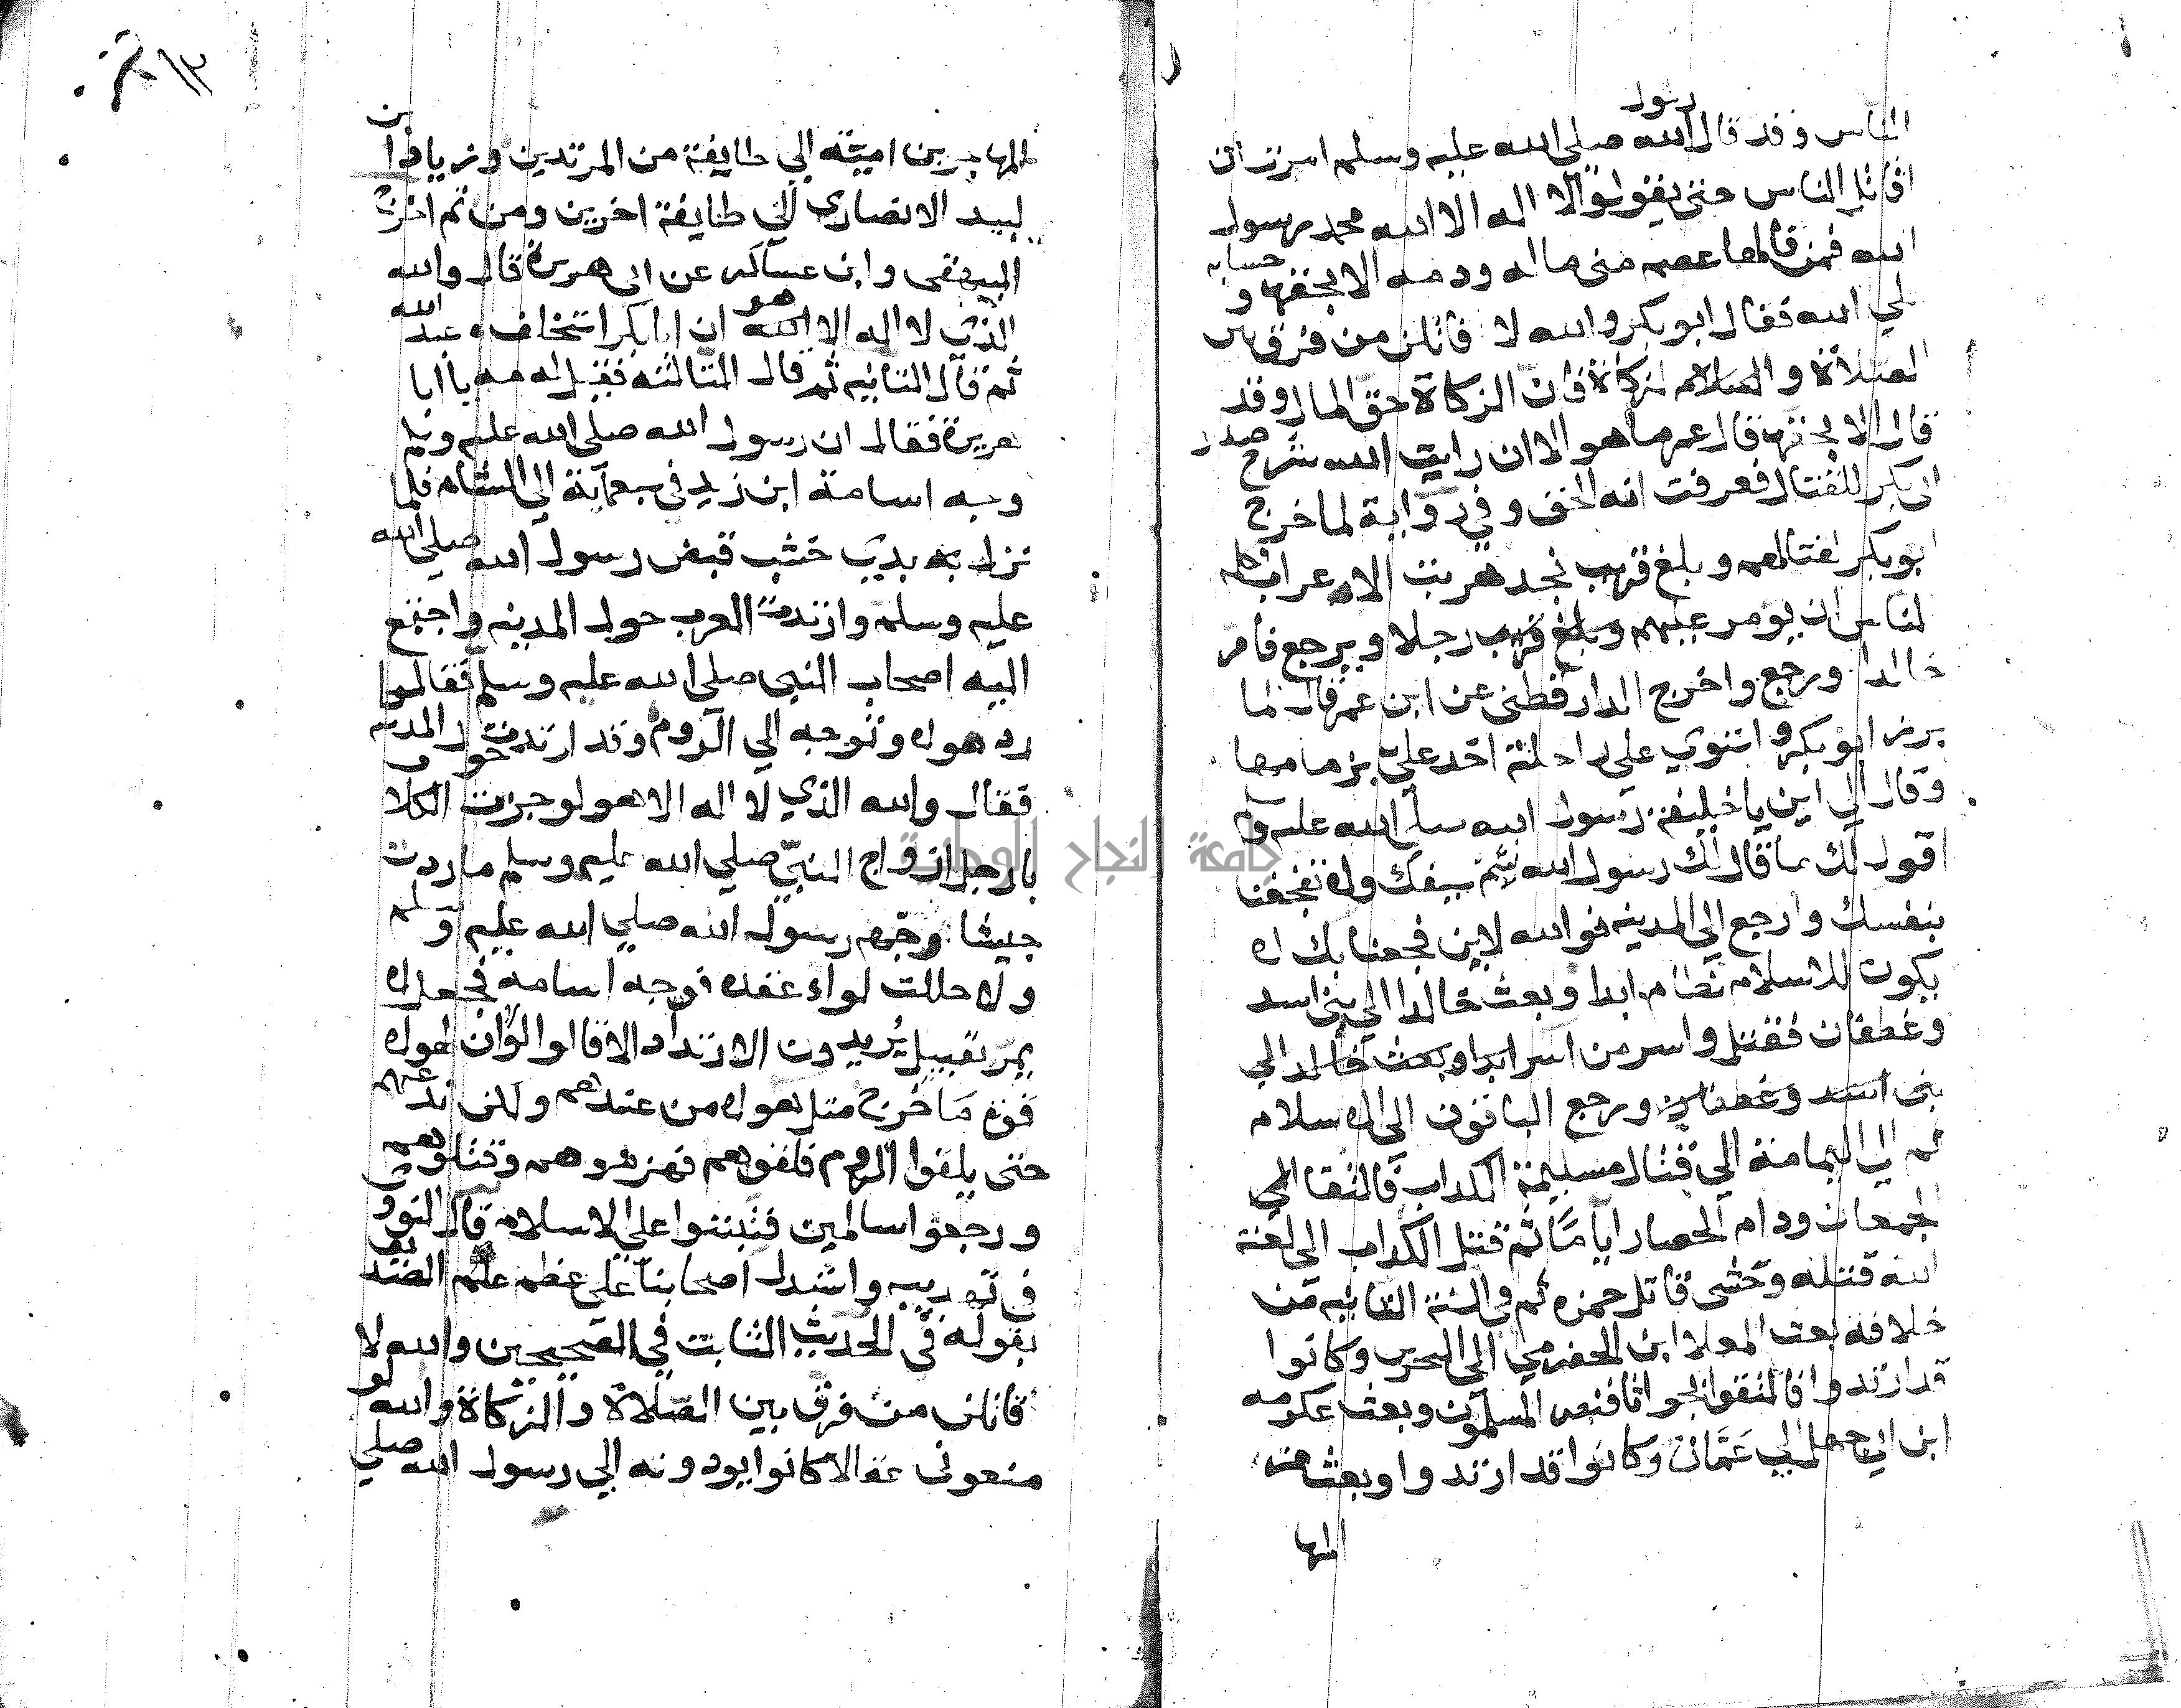 الناس وقد قال رسول الله صلي الله عليه وسلم امرت ان
اقاتل الناس حتى يقولوا لا اله الا الله محمد رسول
الله فمن قالها عصم منى ماله ودمه الا بحقها و حسابه
على الله فقال ابو بكر والله لا قاتلن من فرق بين
الصلاة و الزكاة فان الزكاة حق المال وقد
قال الا بحقها قال عمر ما هو الا ان رايت الله شرح صدر
ابى بكر للقتال فعرفت انه الحق وفي رواية لما خرج
ابو بكر لقتالهم و بلغ قريب نجد هربت الاعراب فكلم
الناس ان يومر عليهم رجلا ويرجع فامر
خالدا ورجع واخرج الدارقطنى عن ابن عمر قال لما
برز ابو بكر واستوي على راحلته اخذ علي بزمامها
وقال الي اين يا خليفة رسول الله صلى الله عليه وسلم
اقول لك ما قال لك رسول الله شم سيفك ولا تفجعنا
بنفسك وارجع الي المدينه فوالله لاين فجعنا بك لا
يكون للاسلام نظام ابدا وبعث خالدا الي بنى اسد
وغطفان فقتل واسر من اسر وبعث خالد الي
بنى اسد وغطفان ورجع الباقون الى الاسلام
ثم الي اليمامة الي قتال مسيلمة الكداب فالتقا
الجمعان ودام الحصار اياما ثم قتل الكداب الى لعنة
الله قتله وحشى قاتل حمزه ثم في السنة الثانيه من
خلافه بعث العلا ابن الحضرمي الى البحرين وكانوا
قد ارتدوا فالتقوا بجواثا فنصر المسلمون وبعث عكرمه
ابن ابي جهل الي عمان وكانوا قد ارتدوا وبعث
المها
المهاجر بن امية الي طايفة من المرتدين وزياد بن
لبيد الانصاري الي طايفة اخرين ومن ثم اخرج
البيهقى وابن عساكر عن ابى هريرة قال والله
الذي لا اله الا هو ان ابا بكر استخلف ما عبد الله
ثم قال الثانيه ثم قال الثالثه فقيل له مه يا ابا
هريرة فقال ان رسول الله صلى الله عليه وسلم
وجه اسامة ابن زيد في سبعمائة الي الشام فلما
نزل بدي خشب قبض رسول الله صلي الله
عليه وسلم وارتدت العرب حول المدينه واجتمع
اليه اصحاب النبي صلي الله عليه وسلم فقالوا
رد هولاء وتوجه الي الروم وقد ارتدت حول المدينه
فقال والله الذي لا اله الا هو لو جرت الكلاب
بارجل ازواج النبي صلي الله عليه وسلم ما رددت
جيشا وجهه رسول الله صلي الله عليه وسلم
ولا حللت لواء عقده فوجه اسامه فجعل لا
يمر بقبيل يريدون الارتداد الا قالوا لولا ان لهولاء
قوة ما خرج مثل هولاء من عندهم ولكن ندعهم
حتى يلقوا الروم فلقوهم فهزموهم وقتلوهم
ورجعوا سالمين فثبتوا على الاسلام قال النووي
في تهديبه واستدل اصحابنا على عظم علم الصديق
بقوله في الحديث الثابت في الصحيحين والله لا
قاتلن من فرق بين الصلاة والزكاة والله لو
منعونى عقالا كانوا يودونه الي رسول الله صلي